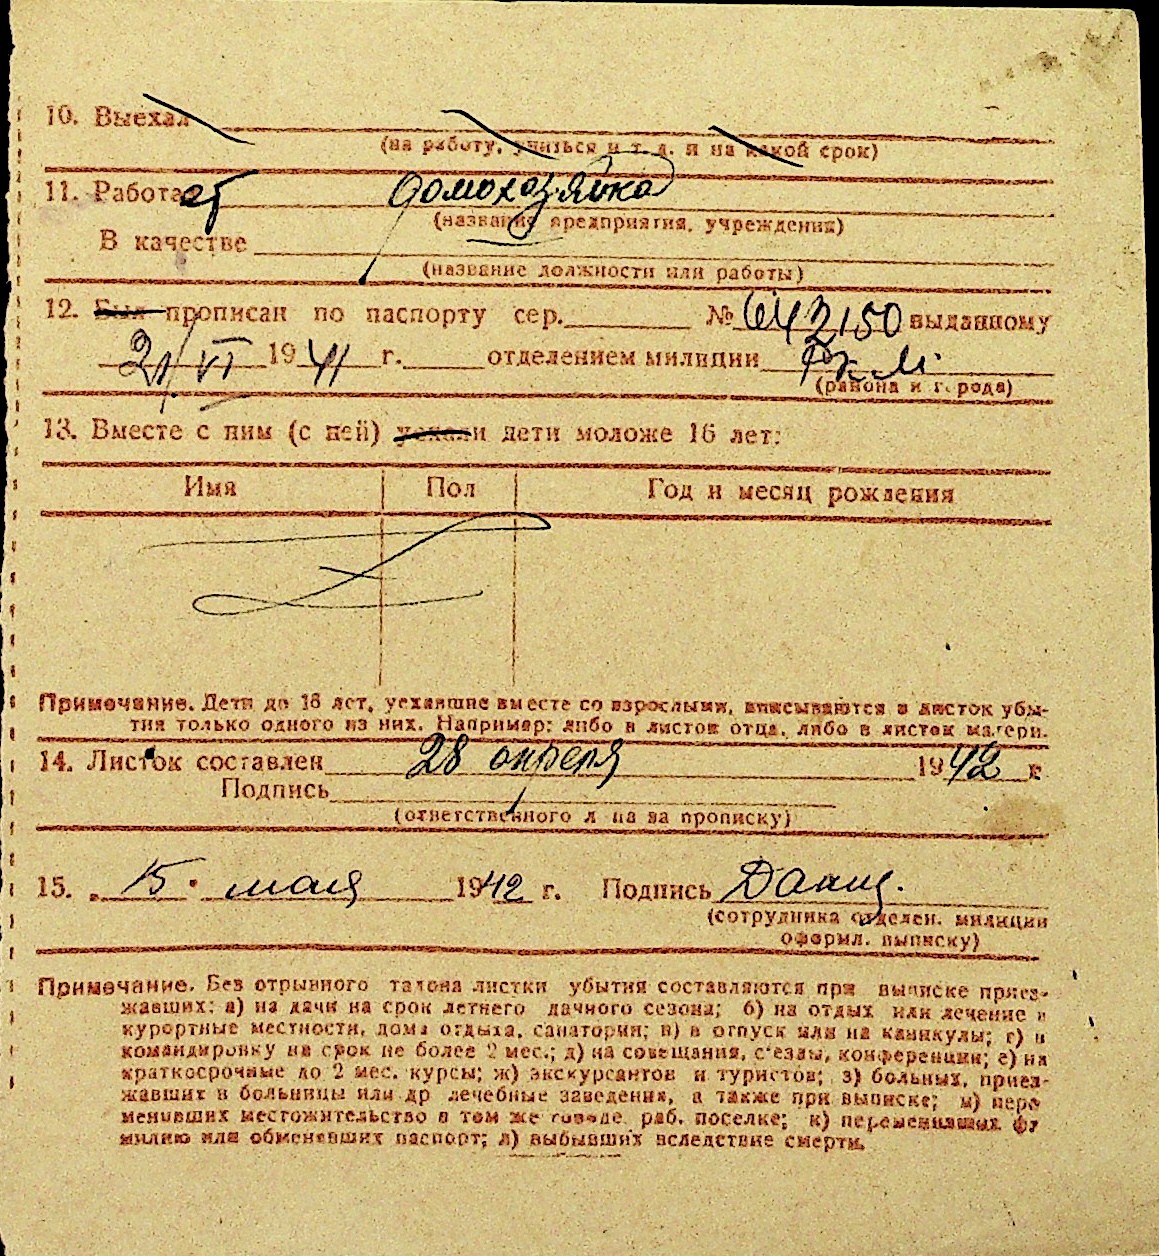 10. Выехал
(на работу, учиться и т. д. и на какой срок)
11. Работает домохозяйка
(название предприятия, учреждения)
В качестве
(название должности или работы)
12. Был прописан по паспорту сер. № 642150 выданному
21/VI 1941 г. отделением милиции РКМ
(района и города)
13. Вместе с ним (с ней) уехали дети моложе 16 лет:
Имя Пол Год и месяц рождения
Примечание. Дети до 16 лет, уехавшие вместе со взрослыми, вписываются в листок убы-
тия только одного из них. Например: либо в листок отца, либо в листок матери.
14. Листок составлен 28 апреля 1942 г.
Подпись
(ответственного л ца за прописку)
15. „15" мая 1942 г. Подпись
(сотрудника отделен. милиции
оформл. выписку)
Примечание. Без отрывного талона листки убытия составляются при выписке приез-
жавших: а) на дачи на срок летнего дачного сезона; б) на отдых или лечение в
курортные местности, дома отдыха, санатории; в) в отпуск или на каникулы; г) в
командировку на срок не более 2 мес.; д) на совещания, с'езды, конференции; е) на
краткосрочные до 2 мес. курсы; ж) экскурсантов и туристов; з) больных, приез-
жавших в больницы или др лечебные заведения, а также при выписке; и) пере
менивших местожительство в том же городе, раб. поселке; к) переменивших фа
милию или обменявших паспорт; л) выбывших вследствие смерти.